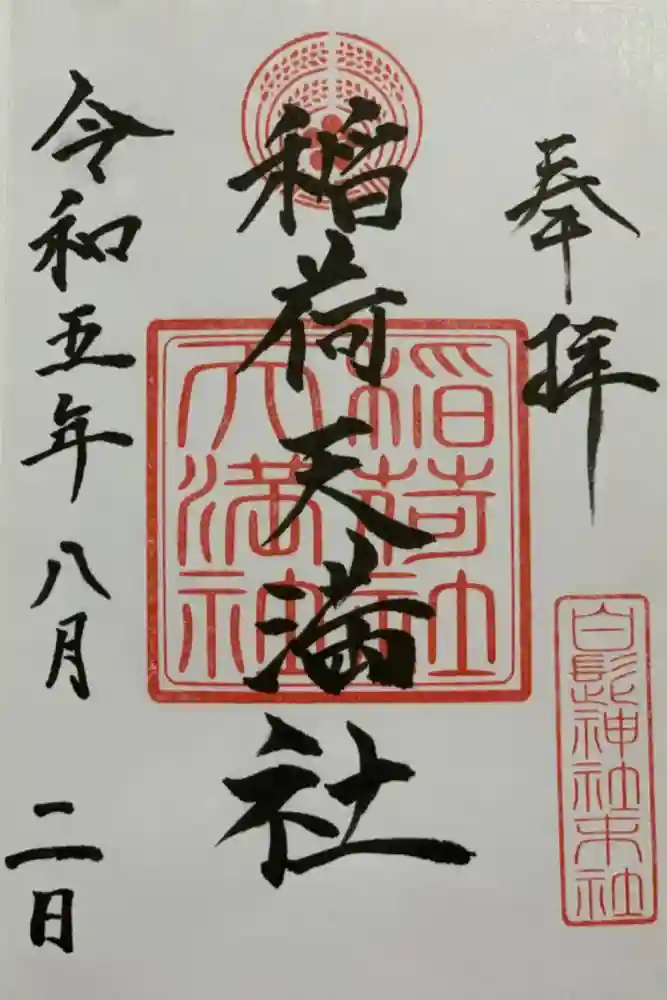 奉拝
白髭神社末社
稲荷天満社
稲荷社
天満社
令和五年八月二日